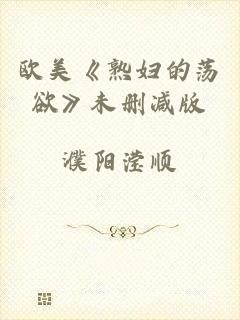 欧美《熟妇的荡
欲》未删减版
濮阳滢顺